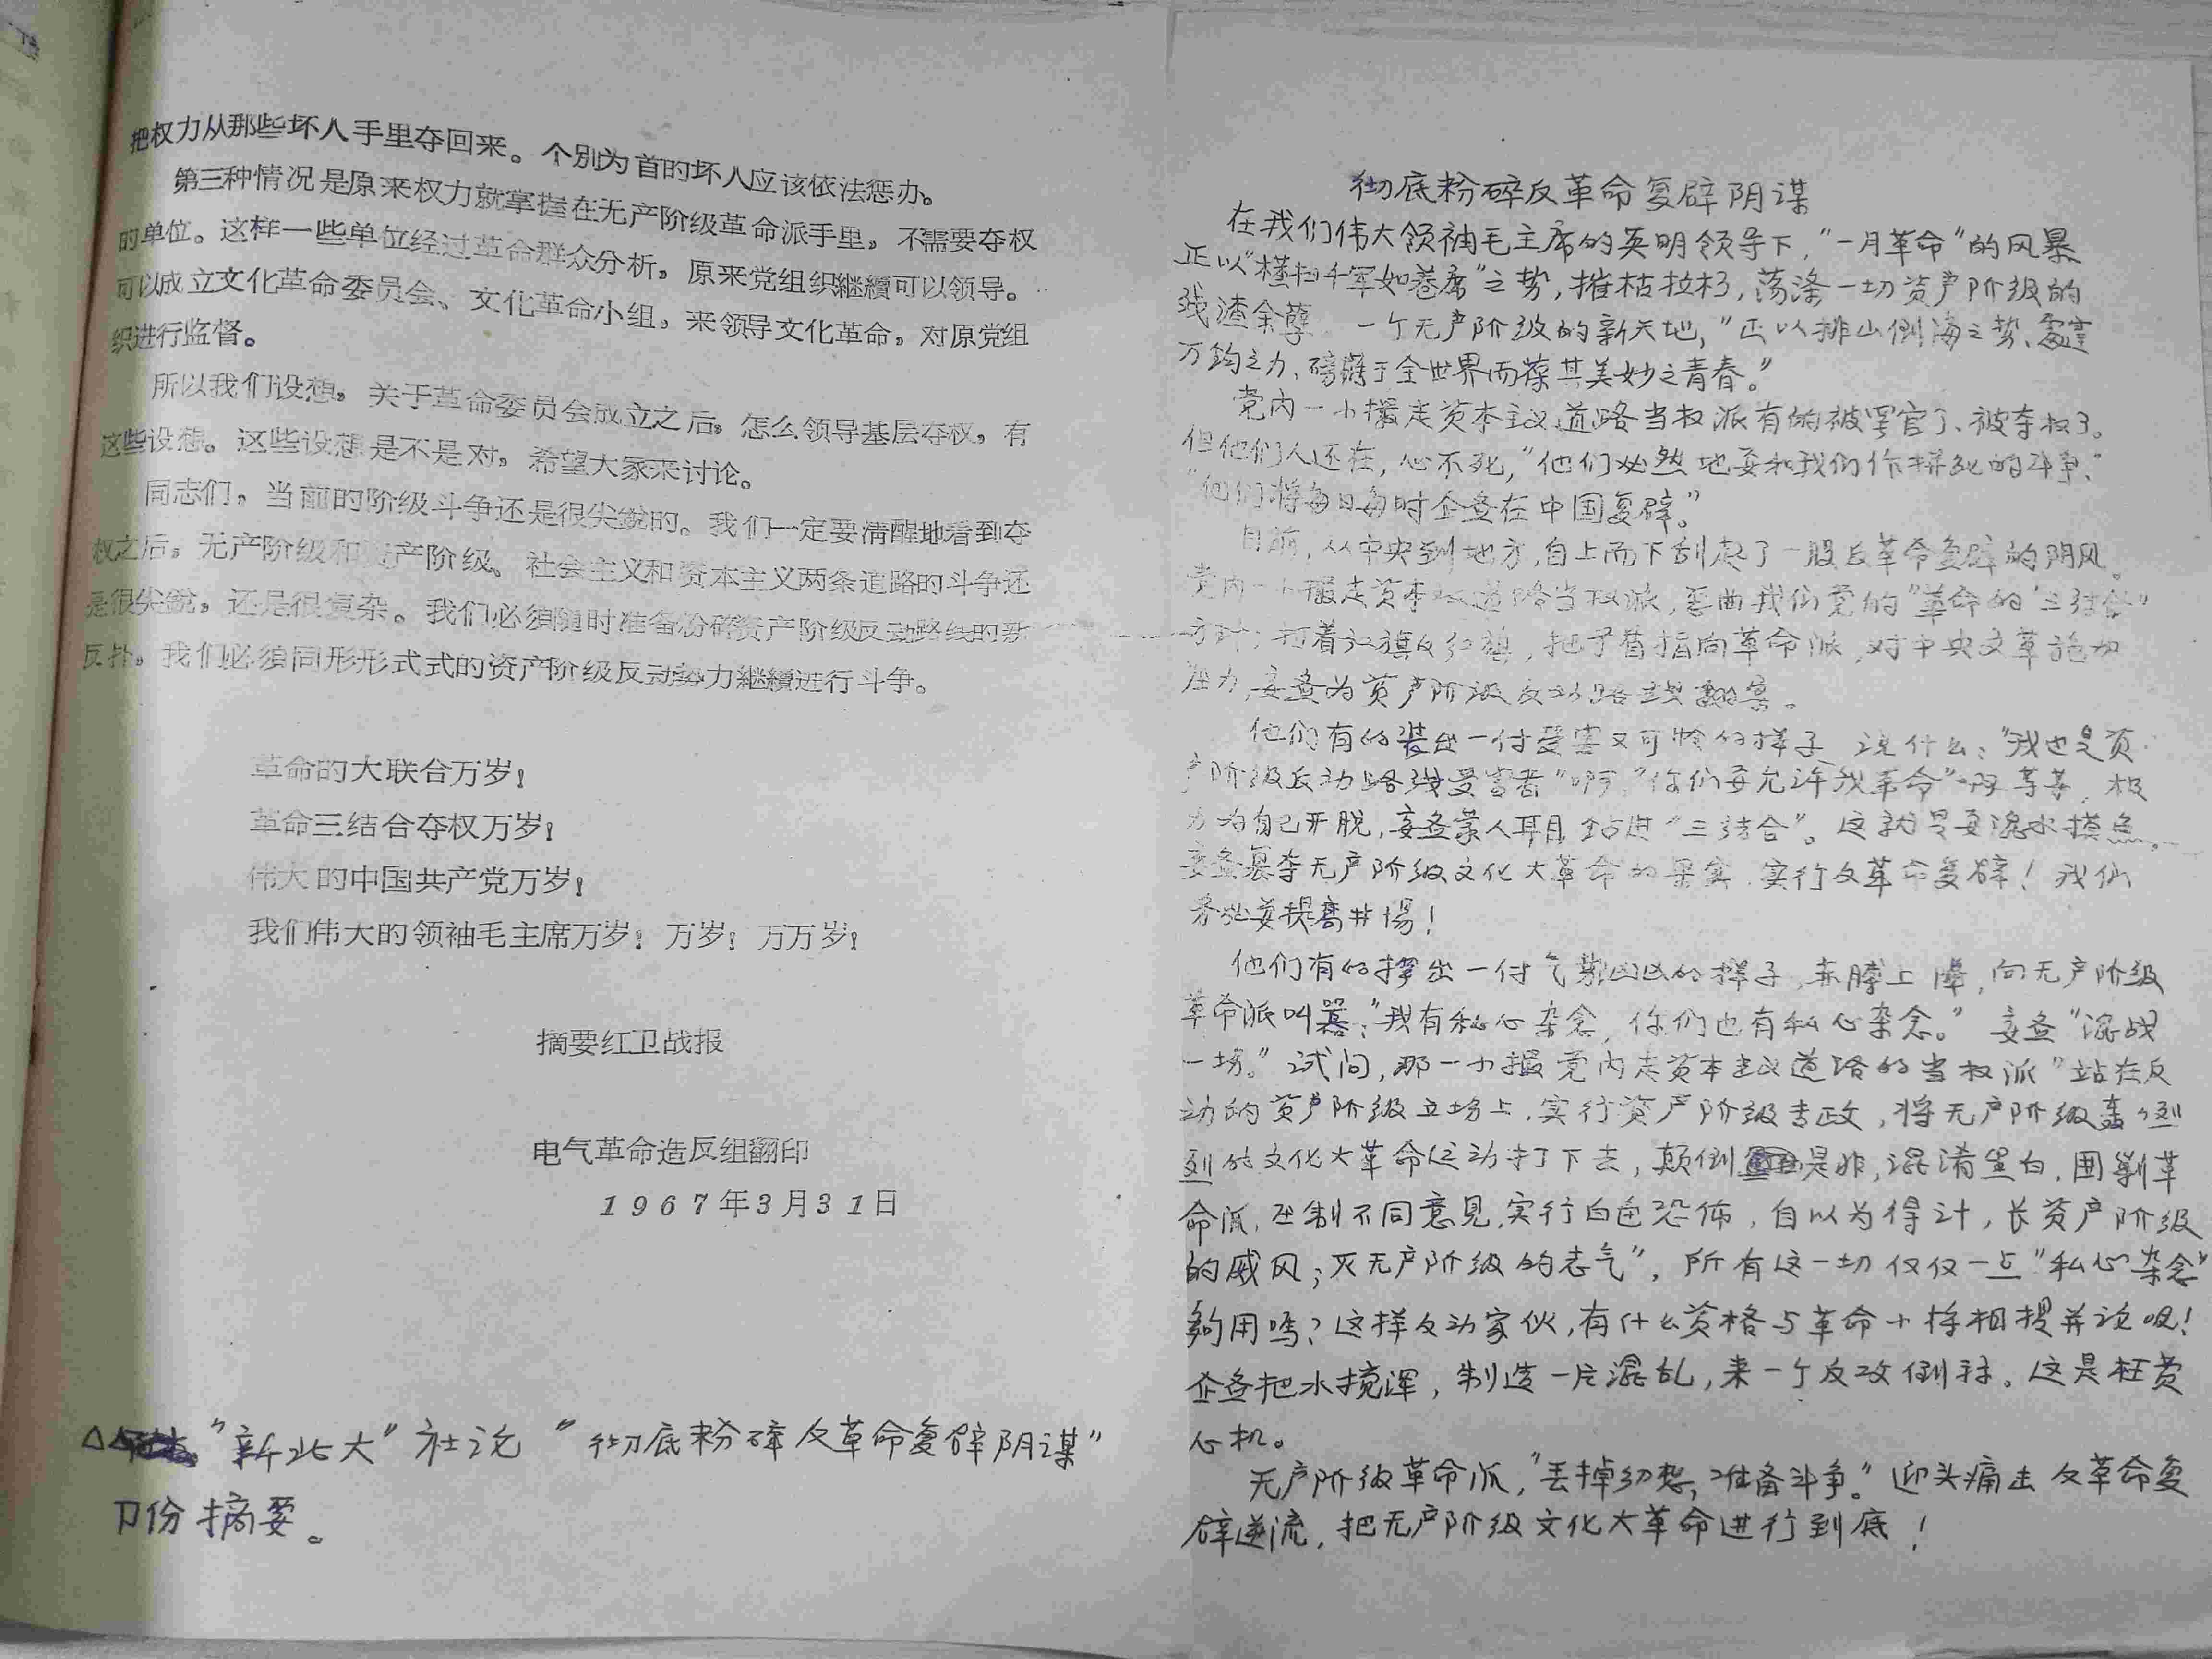 把权力从那些坏人手里夺回来。个别为首的坏人应该依法惩办。
第三种情况是原来权力就掌握在无产阶级革命派手里，不需要夺权
的单位。这样一些单位经过革命群众分析，原来党组织継續可以领导。
可以成立文化革命委员会、文化革命小组，来领导文化革命，对原党组
织进行监督。
所以我们设想，关于革命委员会成立之后，怎么领导基层夺权，有
这些设想。这些设想是不是对，希望大家来讨论。
同志们，当前的阶级斗争还是很尖銳的。我们一定要清醒地看到夺
权之后，无产阶级和资产阶级、社会主义和资本主义两条道路的斗争还
是很尖銳，还是很复杂。我们必须随时准备粉碎资产阶级反动路线的新
反扑，我们必须同形形式式的资产阶级反动势力継續进行斗争。
革命的大联合万岁！
革命三结合夺权万岁！
伟大的中国共产党万岁！
我们伟大的领袖毛主席万岁！万岁！万万岁！
摘要红卫战报
电气革命造反组翻印
1967年3月31日
△△ "新北大"社论"彻底粉碎反革命复辟阴谋"
卩份摘要。
彻底粉碎反革命复辟阴谋
在我们伟大领袖毛主席的英明领导下，"一月革命"的风暴
正以"横扫千军如卷席"之势，摧枯拉朽，荡涤一切资产阶级的
残渣余孽。一个无产阶级的新天地，"正以排山倒海之势、雷霆
万钧之力、磅礴于全世界而葆其美妙之青春。"
党内一小撮走资本主义道路当权派有的被罢官了、被夺权了。
但他们人还在，心不死，"他们必然地要和我们作拼死的斗争"，
"他们将每日每时企图在中国复辟。"
目前，从中央到地方，自上而下刮起了一股反革命复辟的阴风。
党内一小撮走资本主义道路当权派，歪曲我们党的"革命的'三结合'"
方针，打着红旗反红旗，把矛头指向革命派，对中央文革施加
压力，妄图为资产阶级反动路线翻案。
他们有的装出一付受害又可怜的样子，说什么："我也是资
产阶级反动路线受害者"啊，"你们要允许我革命"啊等等，极
力为自己开脱，妄图蒙人耳目，钻进"三结合"。这就是要混水摸鱼，
妄图篡夺无产阶级文化大革命的果实，实行反革命复辟！我们
务必要提高井惕！
他们有的摆出一付气势凶凶的样子，赤膊上阵，向无产阶级
革命派叫嚣："我有私心杂念，你们也有私心杂念。"妄图"混战
一场。"试问，那一小撮党内走资本主义道路的当权派"站在反
动的资产阶级立场上，实行资产阶级专政，将无产阶级轰轰烈
烈的文化大革命运动打下去，颠倒是非，混淆黑白，围剿革
命派，压制不同意见，实行白色恐怖，自以为得计，长资产阶级
的威风；灭无产阶级的志气"，所有这一切仅仅一点"私心杂念"
夠用吗？这样反动家伙，有什么资格与革命小将相提并论呢！
企图把水搅浑，制造一片混乱，来一个反攻倒祘。这是枉费
心机。
无产阶级革命派，"丢掉幻想，准备斗争。"迎头痛击反革命复
辟逆流，把无产阶级文化大革命进行到底！